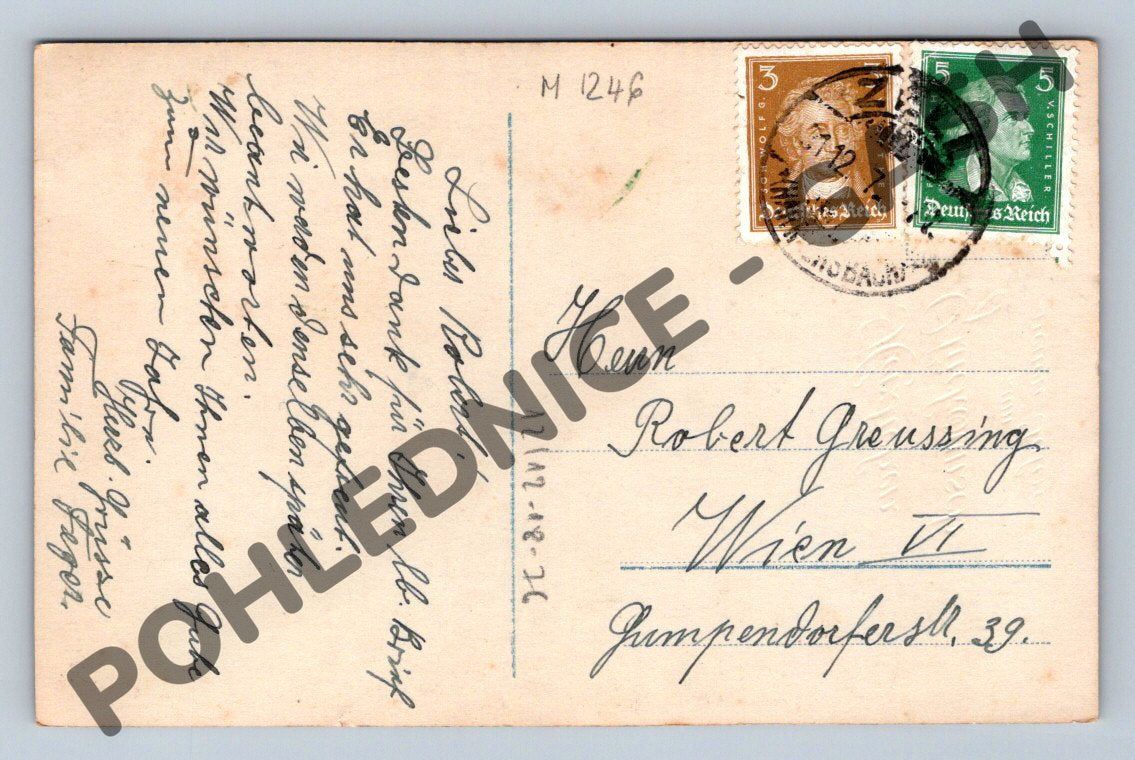 M 1246
3
3
JOH. WOLFG.
Deutsches Reich
5
5
V. SCHILLER
Deutsches Reich
31.12.
Liebes Roberl,
Besten dank für Ihren lb. Brief
Er hat uns sehr gefreut.
Wir werden denselben später
beantworten.
Wir wünschen Ihnen alles Gute
zum neuen Jahr.
Herrn
Robert Greussing
Wien VI
Gumpendorferstr. 39.
Herzl. Grüsse
Familie
POHLEDNICE - SBEH